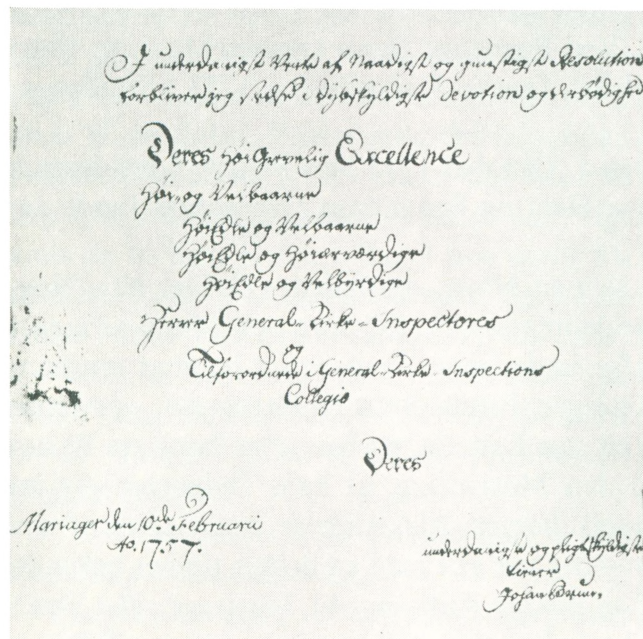 I underdanigst Vente af Naadigst og gunstigst Resolution
forbliver jeg stedse i dybskyldigst Devotion og Ærbødighed
Deres Høi Grevelig Excellence
Høi- og Velbaarne
HøiEdle og Velbaarne
HøiEdle og Høiærværdige
HøiEdle og Velbyrdige
Herrer General-Kirke-Inspectores
og
Tilforordnede i General-Kirke-Inspections
Collegio
Deres
Mariager den 10de Februarii
Ao. 1757.
underdanigste og pligtskyldigste
tiener
Johan